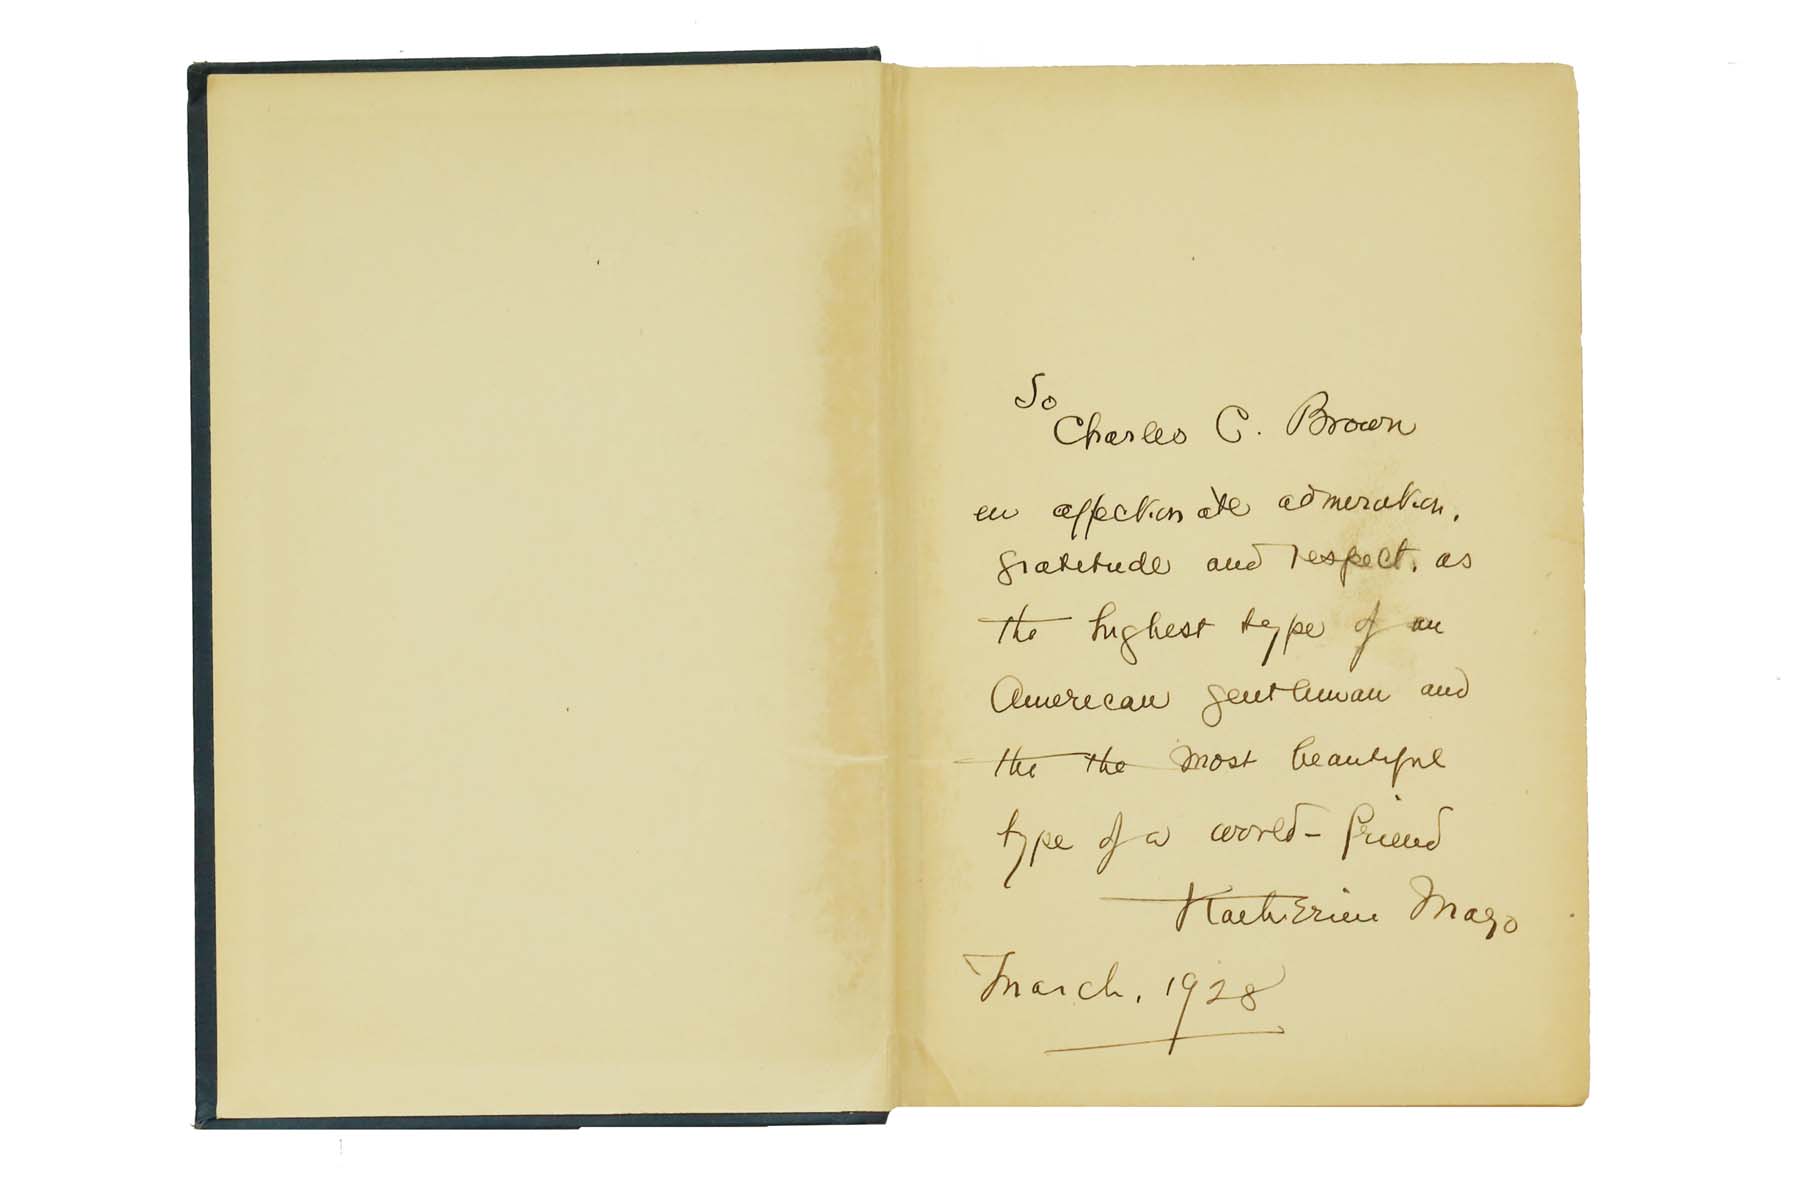 To
Charles C. Brown
in affectionate admiration,
gratitude and respect, as
the highest type of an
American gentleman and
the the most beautiful
type of a world-friend
Katherine Mayo
March, 1928